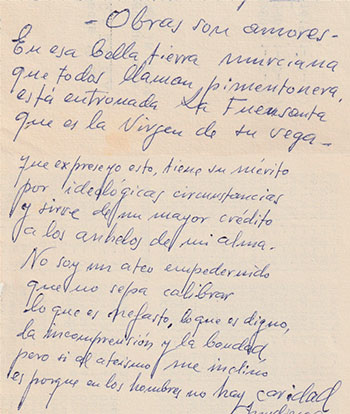 - Obras son amores -
En esa bella tierra murciana
que todos llaman pimentonera,
está entronada La Fuensanta
que es la Virgen de su vega -
que expresé yo esto, tiene su mérito
por ideológicas circunstancias
y sirve de mi mayor crédito
a los anhelos de mi alma.
No soy un ateo empedernido
que no sepa calibrar
lo que es nefasto, lo que es digno,
la incomprensión y la bondad
pero si al ateismo me inclino
es porque en los hombres no hay caridad